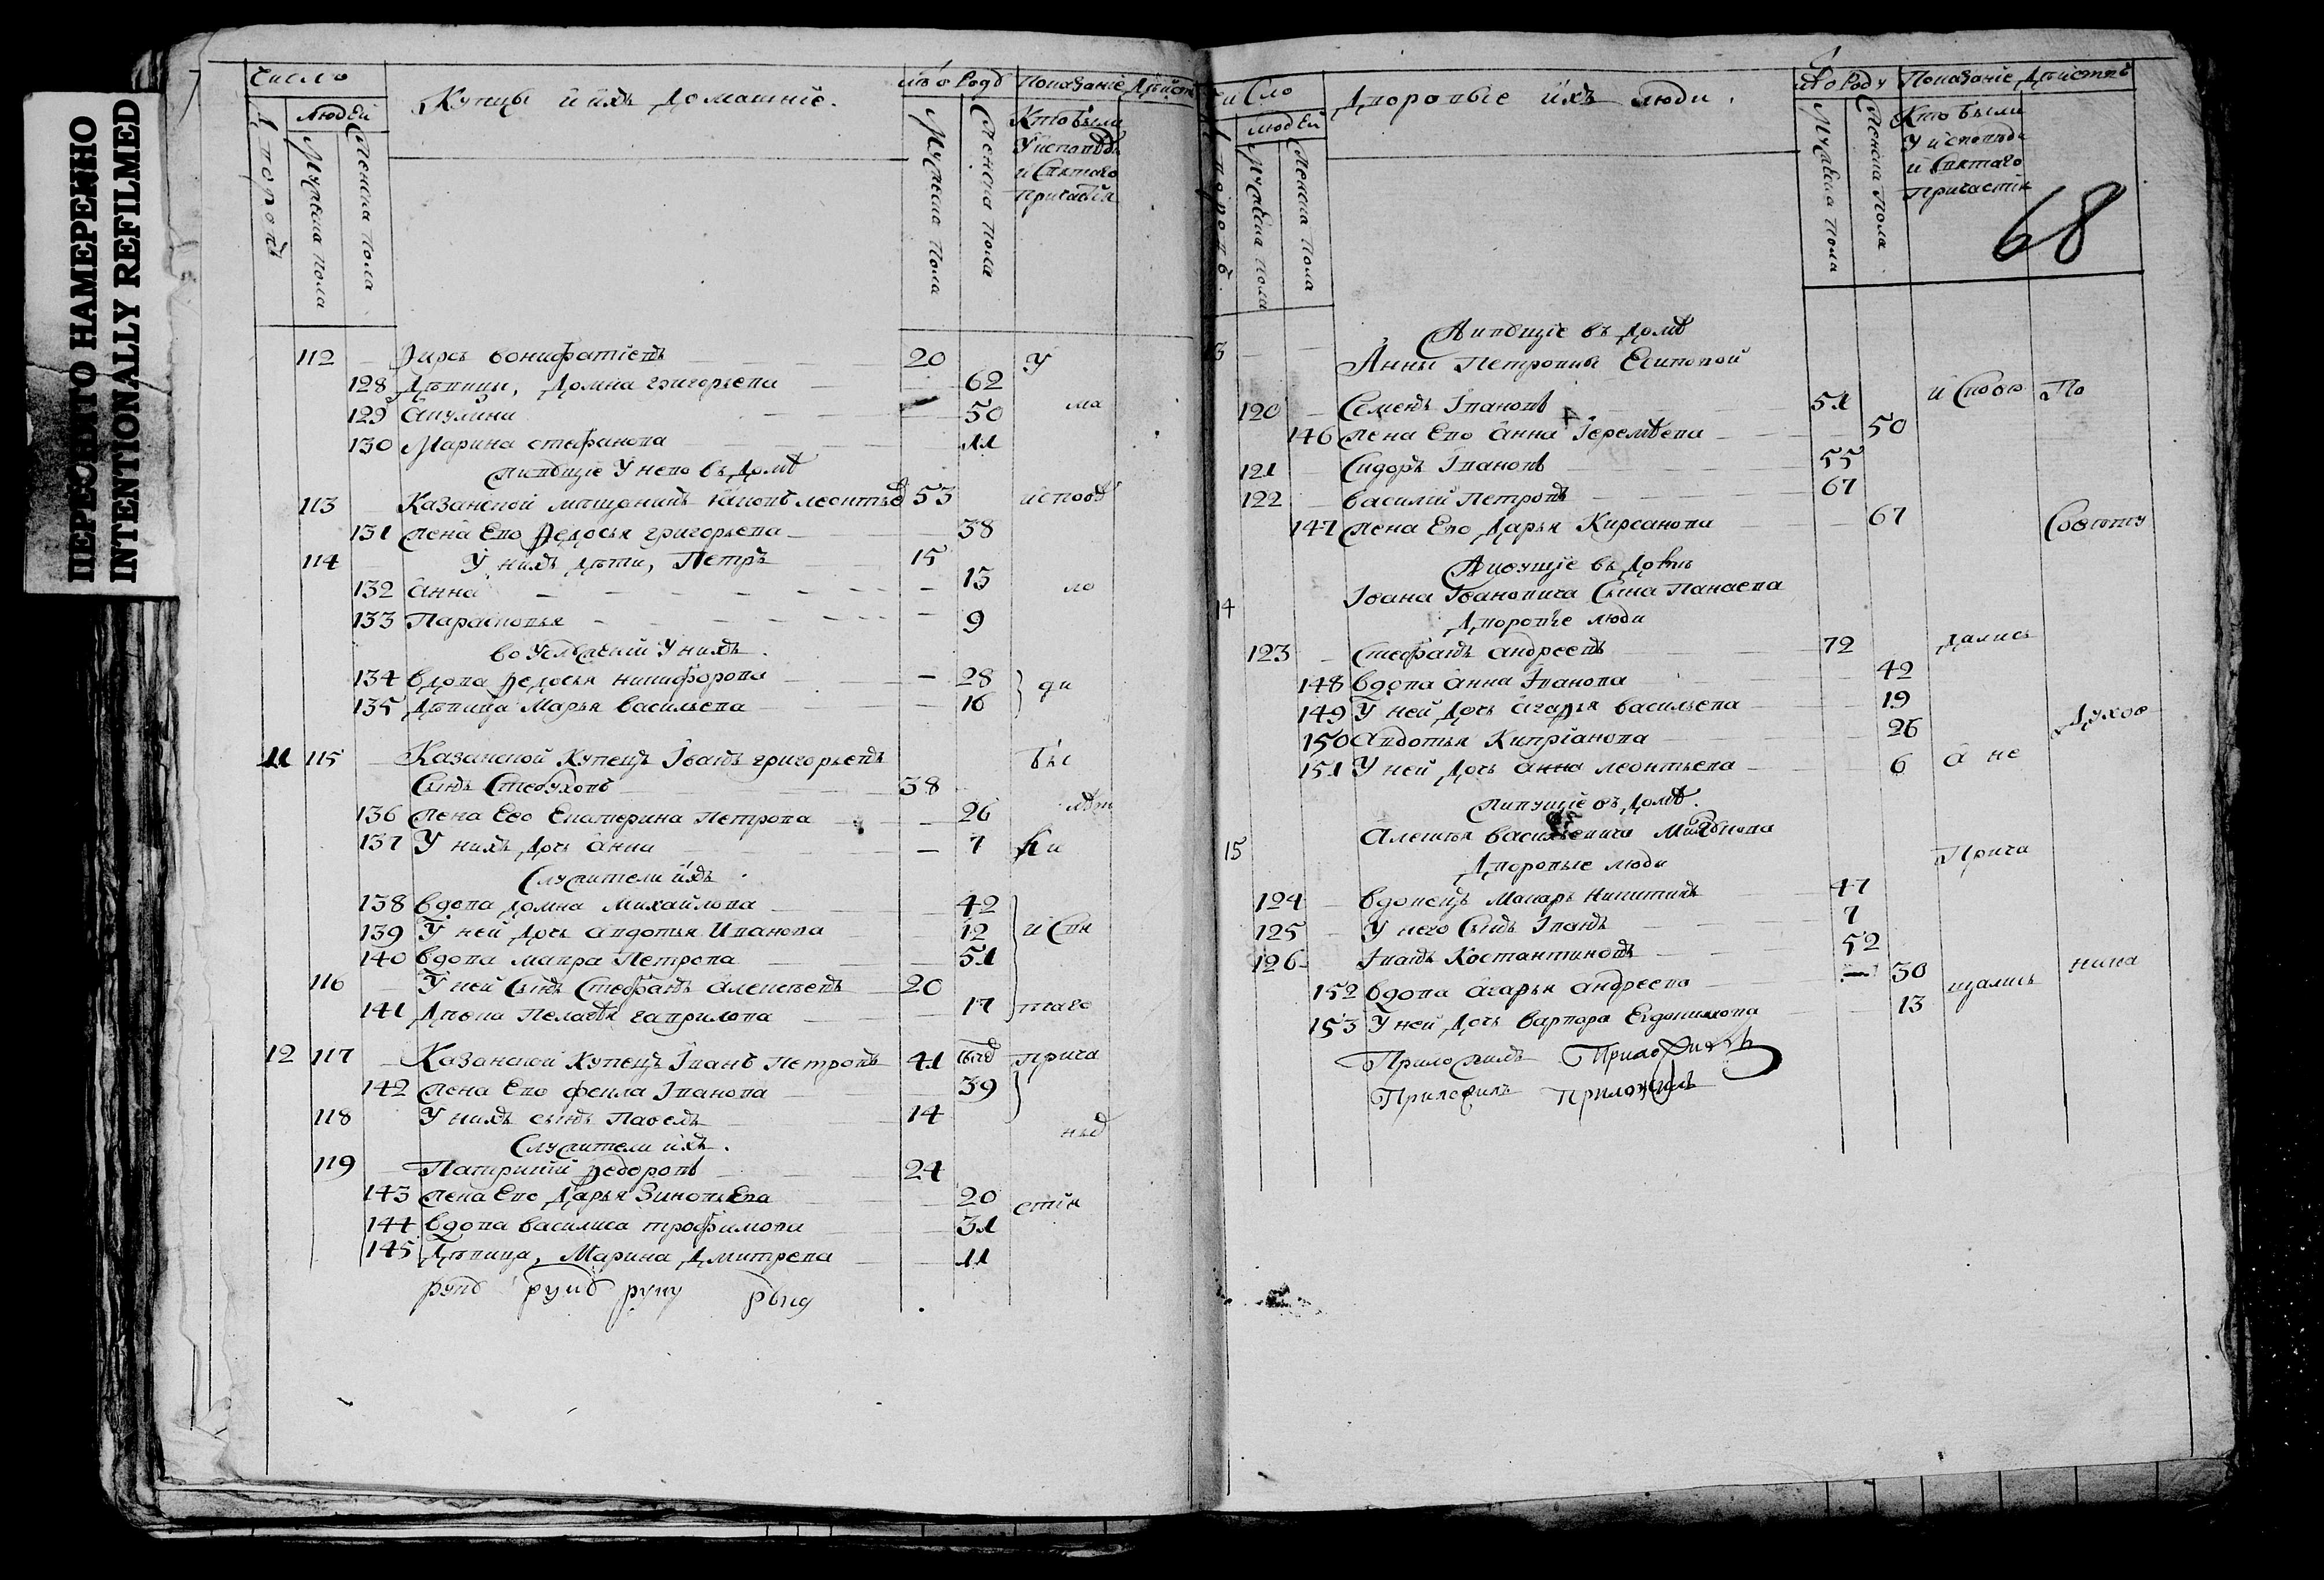 ПЕРЕСНЯТО НАМЕРЕННО
INTENTIONALLY REFILMED
Число
людей
Мужеска пола
Женска пола
Купцы и ихъ домашніе.
Мужеска пола
Женска пола
Показаніе Дѣйст
Кто были
У исповѣди
и Святаго
Причастія
112 Фирсъ Вонифатіевъ 20 У
128 Дѣвицы, Домна григорьева 62
129 Акулина 50
130 Марина стефанова 11
живущіе У него въ домѣ
113 Казанской мѣщанинъ Яковъ леонтьевъ 53 исповѣ
131 жена Его Федосья григорьева 38
114 У нихъ дѣти, Петръ 15
132 Анна 13
133 Парасковья 9
во Услуженіи У нихъ.
134 вдова Федосья никифорова 28 ди
135 Дѣвица Марья васильева 16
11 115 Казанской Купецъ Іванъ григорьевъ бы
Сынъ Стебуховъ 38
136 жена Ево Екатерина Петрова 26
137 У нихъ дочь Анна 7 ли
Служители ихъ.
138 вдова домна михайлова 42
139 У ней дочь авдотья Иванова 12 и Свя
140 вдова мавра Петрова 51
116 У ней Сынъ Стефанъ алексеевъ 20
141 Жена Пелагѣя гаврилова 17 таго
12 117 Казанской Купецъ Іванъ Петровъ 41 прича
142 жена Его фекла Іванова 39
118 У нихъ сынъ Павелъ 14
Служители ихъ.
119 Патрикій Федоровъ 24
143 жена Его Дарья Зиновьева 20 стія
144 вдова василиса трофимова 31
145 Дѣвица, Марина Дмитрева 11
руку
Число
людей
Мужеска пола
Женска пола
Дворовые ихъ люди.
Мужеска пола
Женска пола
Показаніе Дѣйствъ
Кто были
У исповѣди
и Святаго
Причастія
68
13 Живущіе въ домѣ
Анны Петровны Есиповой
120 Семенъ Івановъ 51 исповѣ По
146 жена Его Анна Іеремѣева 50
121 Сидоръ Івановъ 55
122 василій Петровъ 67
147 жена Его Дарья Кирсанова 67
Живущіе въ домѣ
14 Івана Івановича Сына Панаева
Дворовые люди
123 Стефанъ андреевъ 72 дались
148 вдова анна Іванова 42
149 У ней дочь агафья васильева 19
150 авдотья Кипріанова 26 Духов
151 У ней дочь анна леонтьева 6 а не
живущіе въ домѣ.
15 Алексѣя васильевича
Дворовые люди Прича
124 вдовецъ Макаръ Никитинъ 47
125 У него Сынъ Іванъ 7
126 Іванъ Костантиновъ 52
152 вдова Агафья андреева 30 щались ника
153 У ней дочь варвара Евдокимова 13
Приложилъ Приложилъ
Приложилъ приложилъ